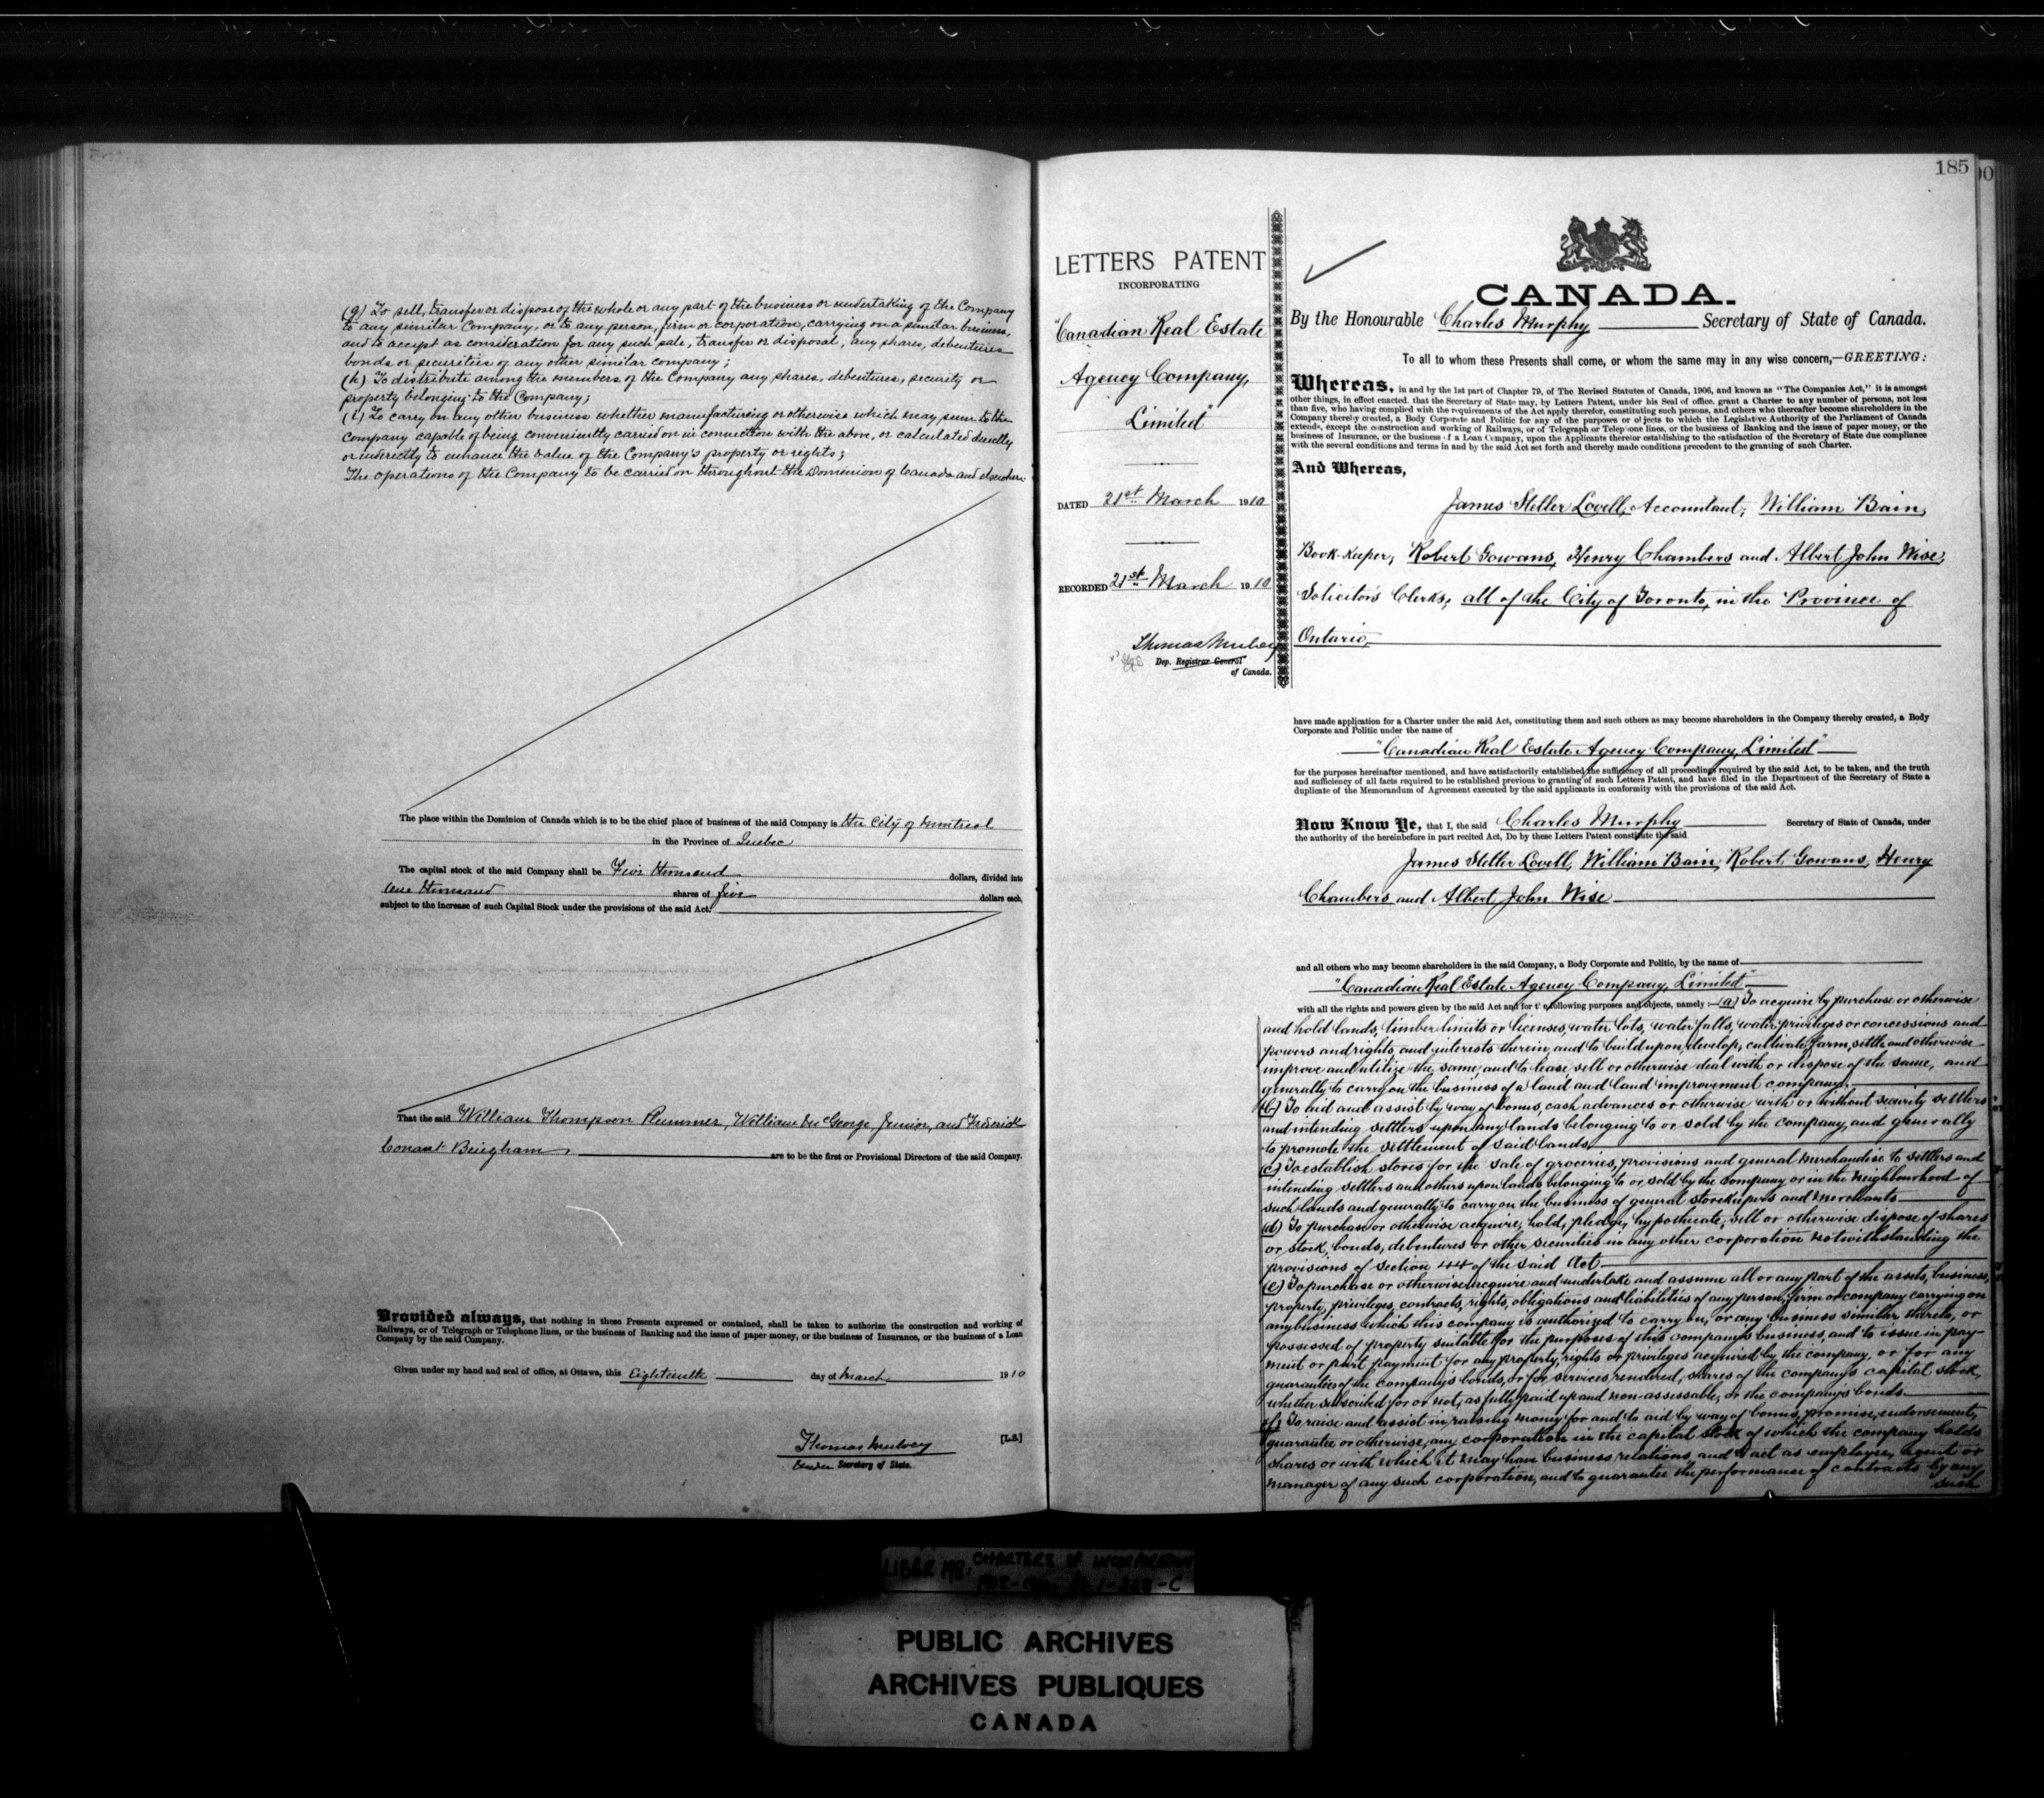 (g) To sell, transfer or dispose of the whole or any part of the business or undertaking of the Company
to any similar Company, or to any person, firm or corporation, carrying on a similar business,
and to accept as consideration for any such sale, transfer or disposal, any shares, debentures
bonds or securities of any other similar company;
(h) To distribute among the members of the Company any shares, debentures, security or
property belonging to the Company;
(i) To carry on any other business whether manufacturing or otherwise which may seem to the
Company capable of being conveniently carried on in connection with the above, or calculated directly
or indirectly to enhance the value of the Company's property or rights;
The operations of the Company to be carried on throughout the Dominion of Canada and elsewhere
The place within the Dominion of Canada which is to be the chief place of business of the said Company is the City of Montreal
in the Province of Quebec
The capital stock of the said Company shall be Five thousand dollars, divided into
One thousand shares of five dollars each,
subject to the increase of such Capital Stock under the provisions of the said Act.
That the said William Thompson Plummer, William George, Junior, and Frederick
Conant Bingham, are to be the first or Provisional Directors of the said Company.
Provided always, that nothing in these Presents expressed or contained, shall be taken to authorize the construction and working of
Railways, or of Telegraph or Telephone lines, or the business of Banking and the issue of paper money, or the business of Insurance, or the business of a Loan
Company by the said Company.
Given under my hand and seal of office, at Ottawa, this Eighteenth day of March 1910
Thomas Mulvey [L.S.]
Under Secretary of State.
185
LETTERS PATENT
INCORPORATING
"Canadian Real Estate
Agency Company,
Limited"
DATED 21st March 1910
RECORDED 21st March 1910
Thomas Mulvey
Dep. Registrar General
of Canada.
CANADA.
By the Honourable Charles Murphy Secretary of State of Canada.
To all to whom these Presents shall come, or whom the same may in any wise concern,—GREETING:
Whereas, in and by the 1st part of Chapter 79, of The Revised Statutes of Canada, 1906, and known as "The Companies Act," it is amongst
other things, in effect enacted, that the Secretary of State may, by Letters Patent, under his Seal of office, grant a Charter to any number of persons, not less
than five, who having complied with the requirements of the Act apply therefor, constituting such persons, and others who thereafter become shareholders in the
Company thereby created, a Body Corporate and Politic for any of the purposes or objects to which the Legislative Authority of the Parliament of Canada
extends, except the construction and working of Railways, or of Telegraph or Telephone lines, or the business of Banking and the issue of paper money, or the
business of Insurance, or the business of a Loan Company, upon the Applicants therefor establishing to the satisfaction of the Secretary of State due compliance
with the several conditions and terms in and by the said Act set forth and thereby made conditions precedent to the granting of such Charter.
And Whereas,
James Steller Lovell, Accountant, William Bain,
Book-keeper, Robert Gowans, Henry Chambers and Albert John Wise,
Solicitor's Clerks, all of the City of Toronto, in the Province of
Ontario,
have made application for a Charter under the said Act, constituting them and such others as may become shareholders in the Company thereby created, a Body
Corporate and Politic under the name of
"Canadian Real Estate Agency Company, Limited"
for the purposes hereinafter mentioned, and have satisfactorily established the sufficiency of all proceedings required by the said Act, to be taken, and the truth
and sufficiency of all facts required to be established previous to granting of such Letters Patent, and have filed in the Department of the Secretary of State a
duplicate of the Memorandum of Agreement executed by the said applicants in conformity with the provisions of the said Act.
Now Know Ye, that I, the said Charles Murphy Secretary of State of Canada, under
the authority of the hereinbefore in part recited Act, Do by these Letters Patent constitute the said
James Steller Lovell, William Bain, Robert Gowans, Henry
Chambers and Albert John Wise
and all others who may become shareholders in the said Company, a Body Corporate and Politic, by the name of
"Canadian Real Estate Agency Company, Limited"
with all the rights and powers given by the said Act and for the following purposes and objects, namely:—(a) To acquire by purchase or otherwise
and hold lands, timber limits or licenses, water lots, water falls, water privileges or concessions and
powers and rights and interests therein, and to build upon, develop, cultivate, farm, settle and otherwise
improve and utilize the same, and to lease, sell or otherwise deal with or dispose of the same, and
generally to carry on the business of a land and land improvement company.
(b) To aid and assist by way of bonus, cash advances or otherwise with or without security settlers
and intending settlers upon any lands belonging to or sold by the company, and generally
to promote the settlement of said lands.
(c) To establish stores for the sale of groceries, provisions and general merchandise to settlers and
intending settlers and others upon lands belonging to or sold by the company or in the neighbourhood of
such lands and generally to carry on the business of general storekeepers and merchants
(d) To purchase or otherwise acquire, hold, pledge, hypothecate, sell or otherwise dispose of shares
or stock, bonds, debentures or other securities in any other corporation notwithstanding the
provisions of section 44 of the said Act.
(e) To purchase or otherwise acquire and undertake and assume all or any part of the assets, business,
property, privileges, contracts, rights, obligations and liabilities of any person, firm or company carrying on
any business which this company is authorized to carry on, or any business similar thereto, or
possessed of property suitable for the purposes of this company's business, and to issue in pay-
ment or part payment for any property, rights or privileges acquired by the company, or for any
guarantees of the company's bonds, or for services rendered, shares of the company's capital stock,
whether subscribed for or not, as fully paid up and non-assessable, or the company's bonds.
(f) To raise and assist in raising money for and to aid by way of bonus, promise, endorsement,
guarantee or otherwise, any corporation in the capital stock of which the company holds
shares or with which it may have business relations, and to act as employee, agent or
manager of any such corporation, and to guarantee the performance of contracts by any
such
LIBER 198: CHARTERS OF INCORPORATION
PUBLIC ARCHIVES
ARCHIVES PUBLIQUES
CANADA